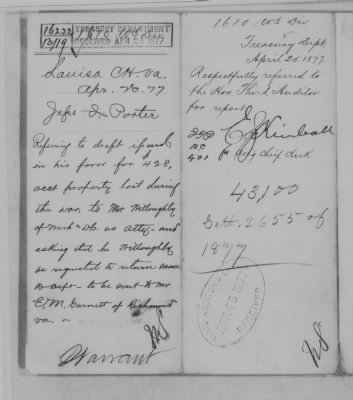 16232
13/19
TREASURY DEPARTMENT
RECEIVED APR 25 1877
Louisa C.H. Va.
Apr. 20. 77
Jefse I. Porter
Referring to draft issued
in his favor for $428,
acct property lost during
the war, to Mr Willoughby
of Wash - D.C. as Atty - and
asking that he Willoughby
be requested to return same
to Dept - to be sent to Mr
E.M. Garnett of Richmond
Va. -
Warrant
1610 WS Div
Treasury Dept,
April 25 1877
Respectfully referred to
the Hon. Third Auditor
for report
E J Kimball
Chief Clerk
43,100
Sett. 2655 of
1877
APR 26 1877
RECEIVED